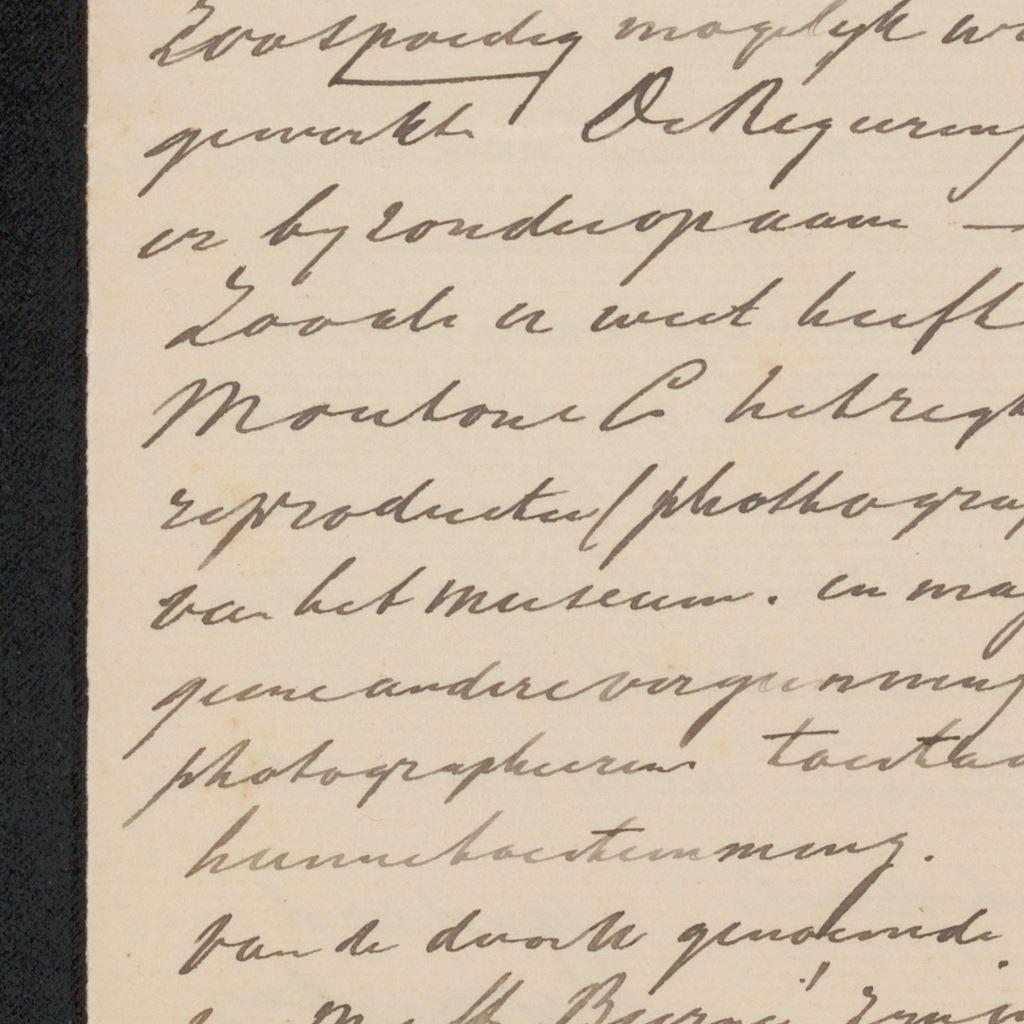 Zoo spoedig mogelijk wo
gewerkt. De Regeering
er byzonder op aan —
Zooals u weet heeft
Mouton & Co het regt
reproductie (photogra
van het museum. en mag
geene andere vergunning
photographeeren toestaa
hunne toestemming.
Van de door U genoemde